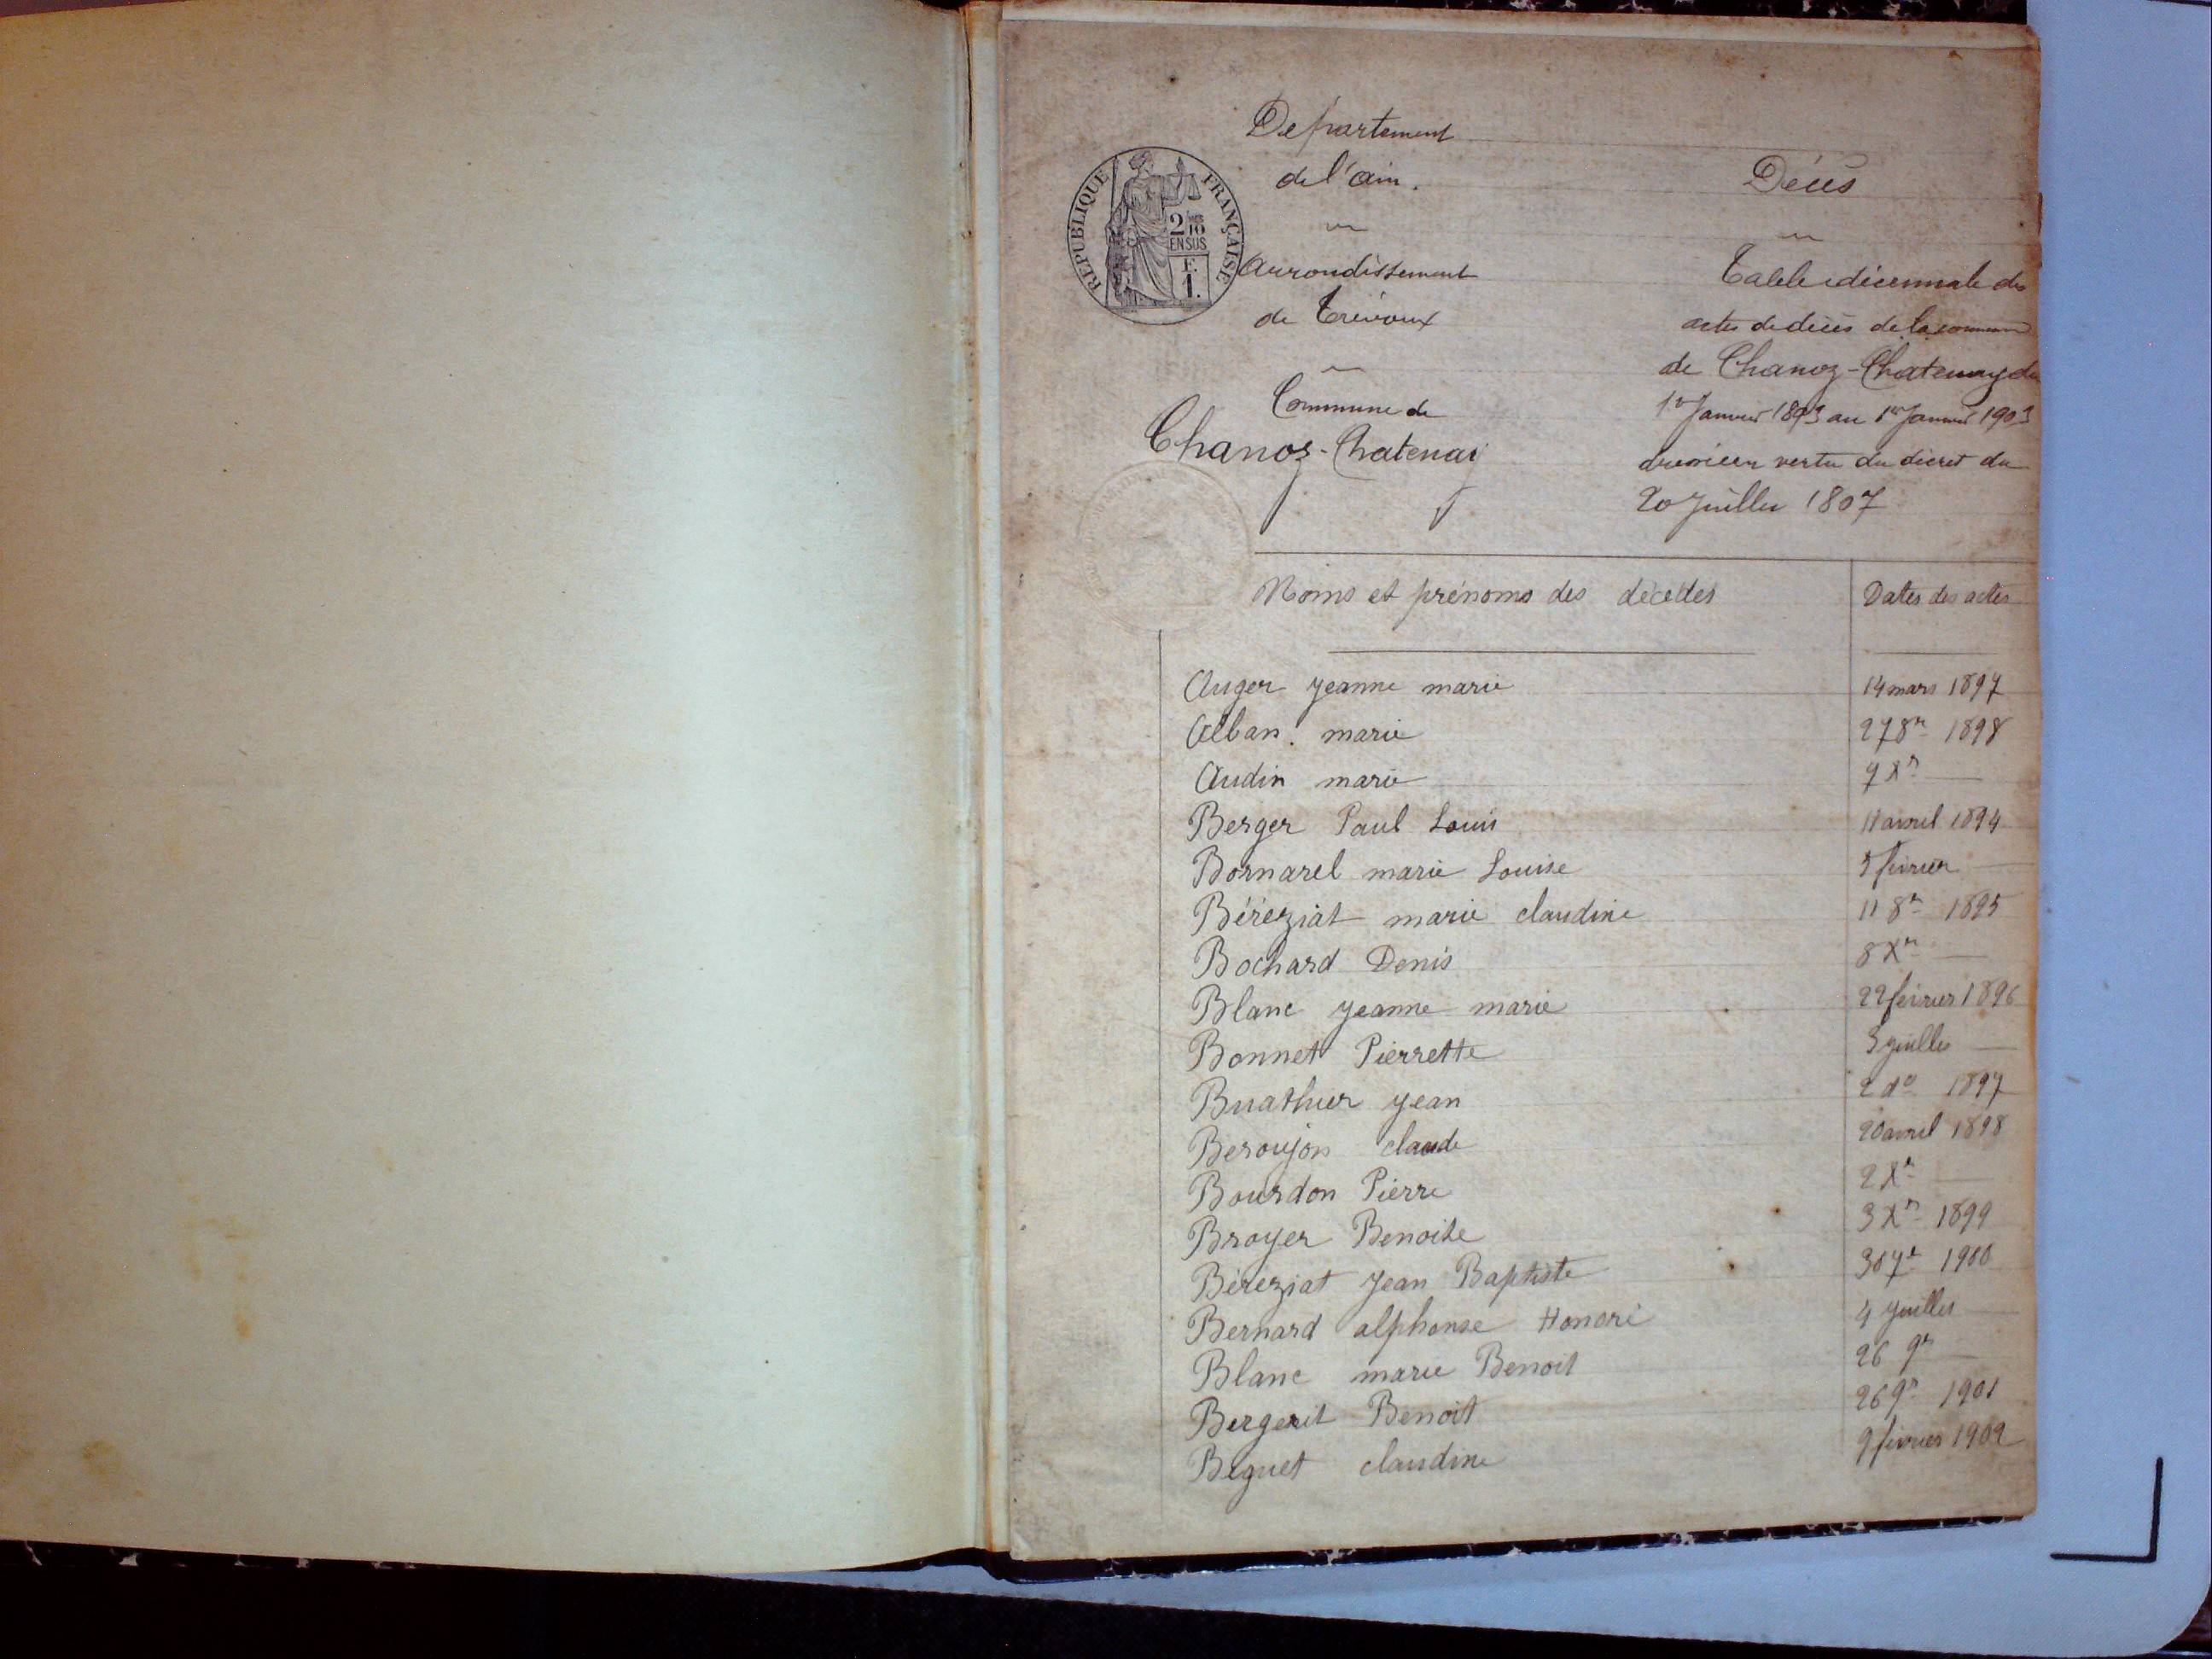 Departement
de l'ain.
REPUBLIQUE FRANÇAISE
2/10
EN SUS
F.
1.
Arrondissement
de Trévoux
Commune de
Chanoz-Chatenay
Décès
Table décennale des
actes de décès de la commune
de Chanoz-Chatenay du
1er Janvier 1893 au 1er Janvier 1903
en vertu du décret du
20 Juillet 1807
Noms et prénoms des décédés
Dates des actes
Auger Jeanne marie 14 mars 1897
Alban marie 27 8re 1898
Audin marie 7 Xre —
Berger Paul Louis 11 avril 1894
Bornarel marie Louise 5 février —
Béréziat marie claudine 11 8re 1895
Bochard Denis 8 Xre —
Blanc Jeanne marie 22 février 1896
Bonnet Pierrette 3 Juillet —
Buathier Jean 2 do 1897
Beroujon claude 20 avril 1898
Bourdon Pierre 2 Xre —
Broyer Benoite 3 Xre 1899
Béreziat Jean Baptiste 30 7re 1900
Bernard alphonse Honoré 4 Juillet —
Blanc marie Benoit 26 9re —
Bergerit Benoit 26 9re 1901
Beguet claudine 9 février 1902